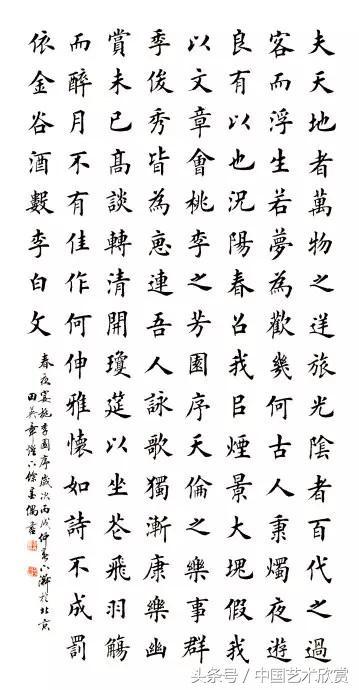 夫天地者萬物之逆旅光陰者百代之過
客而浮生若夢為歡幾何古人秉燭夜遊
良有以也況陽春召我㠯煙景大塊假我
以文章會桃李之芳園序天倫之樂事群
季俊秀皆為惠連吾人詠歌獨漸康樂幽
賞未已髙談轉清開瓊筵以坐花飛羽觴
而醉月不有佳作何伸雅懷如詩不成罰
依金谷酒數李白文
春夜宴桃李園序歲次丙戌仲春下澣於北京
田英章餘墨偶書
头条号／中国艺术欣赏